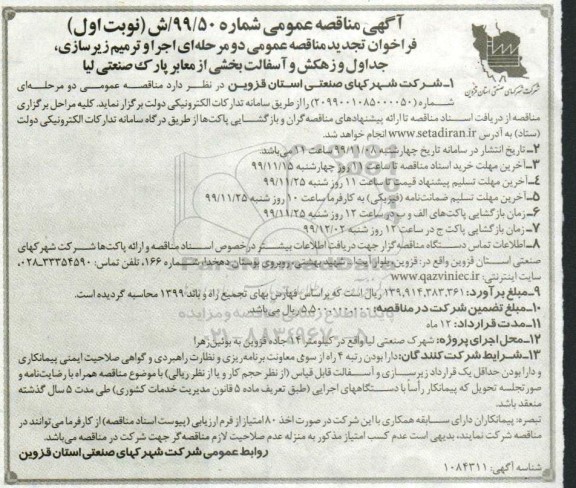 آگهی مناقصه عمومی شماره ۹۹/۵۰/ش (نوبت اول)
فراخوان تجدید مناقصه عمومی دو مرحله‌ای اجرا و ترمیم زیرسازی،
جداول و زهکش و آسفالت بخشی از معابر پارک صنعتی لیا
شرکت شهرکهای صنعتی استان قزوین
۱-شرکت شهرکهای صنعتی استان قزوین در نظر دارد مناقصه عمومی دو مرحله‌ای
شماره (۲۰۹۹۰۰۱۰۸۵۰۰۰۰۵۰) را از طریق سامانه تدارکات الکترونیکی دولت برگزار نماید. کلیه مراحل برگزاری
مناقصه از دریافت اسناد مناقصه تا ارائه پیشنهادهای مناقصه‌گران و بازگشایی پاکت‌ها از طریق درگاه سامانه تدارکات الکترونیکی دولت
(ستاد) به آدرس www.setadiran.ir انجام خواهد شد.
۲-تاریخ انتشار در سامانه تاریخ چهارشنبه ۹۹/۱۱/۰۸ ساعت ۱۱ می‌باشد.
۳-آخرین مهلت خرید اسناد مناقصه تا ساعت ۱۱ روز چهارشنبه ۹۹/۱۱/۱۵
۴-آخرین مهلت تسلیم پیشنهاد قیمت تا ساعت ۱۱ روز شنبه ۹۹/۱۱/۲۵
۵-آخرین مهلت تسلیم ضمانت‌نامه (فیزیکی) به کارفرما ساعت ۱۰ روز شنبه ۹۹/۱۱/۲۵
۶-زمان بازگشایی پاکت‌های الف و ب ساعت ۱۲ روز شنبه ۹۹/۱۱/۲۵
۷-زمان بازگشایی پاکت ج در ساعت ۱۲ روز شنبه ۹۹/۱۲/۰۲
۸-اطلاعات تماس دستگاه مناقصه‌گزار جهت دریافت اطلاعات بیشتر درخصوص اسناد مناقصه و ارائه پاکت‌ها شرکت شهرکهای
صنعتی استان قزوین واقع در: قزوین بلوار آیت‌ا... شهید بهشتی، روبروی بوستان دهخدا، شماره ۱۶۶، تلفن تماس: ۳۳۳۵۴۵۹۰-۰۲۸،
سایت اینترنتی: www.qazviniec.ir
۹-مبلغ برآورد: ۱۳۹,۹۱۴,۳۸۳,۳۶۱ ریال است که براساس فهارس بهای تجمیع راه و باند ۱۳۹۹ محاسبه گردیده است.
۱۰-مبلغ تضمین شرکت در مناقصه: ۵,۵۰۰,۰۰۰,۰۰۰ ریال می‌باشد.
۱۱-مدت قرارداد: ۱۲ ماه
۱۲-محل اجرای پروژه: شهرک صنعتی لیا واقع در کیلومتر ۱۴ جاده قزوین به بوئین‌زهرا
۱۳-شرایط شرکت کنندگان: دارا بودن رتبه ۴ راه از سوی معاونت برنامه‌ریزی و نظارت راهبردی و گواهی صلاحیت ایمنی پیمانکاری
و دارا بودن حداقل یک قرارداد زیرسازی و آسفالت قابل قیاس (از نظر حجم کار و یا از نظر ریالی) با موضوع مناقصه همراه با رضایت‌نامه و
صورتجلسه تحویل که پیمانکار رأساً با دستگاههای اجرایی (طبق تعریف ماده ۵ قانون مدیریت خدمات کشوری) طی مدت ۵ سال گذشته
منعقد باشد.
تبصره: پیمانکاران دارای سابقه همکاری با این شرکت در صورت اخذ ۸۰ امتیاز از فرم ارزیابی (پیوست اسناد مناقصه) از کارفرما می‌توانند در
مناقصه شرکت نمایند، بدیهی است عدم کسب امتیاز مذکور به منزله عدم صلاحیت لازم مناقصه‌گر جهت شرکت در مناقصه می‌باشد.
روابط عمومی شرکت شهرکهای صنعتی استان قزوین
شناسه آگهی: ۱۰۸۴۳۱۱